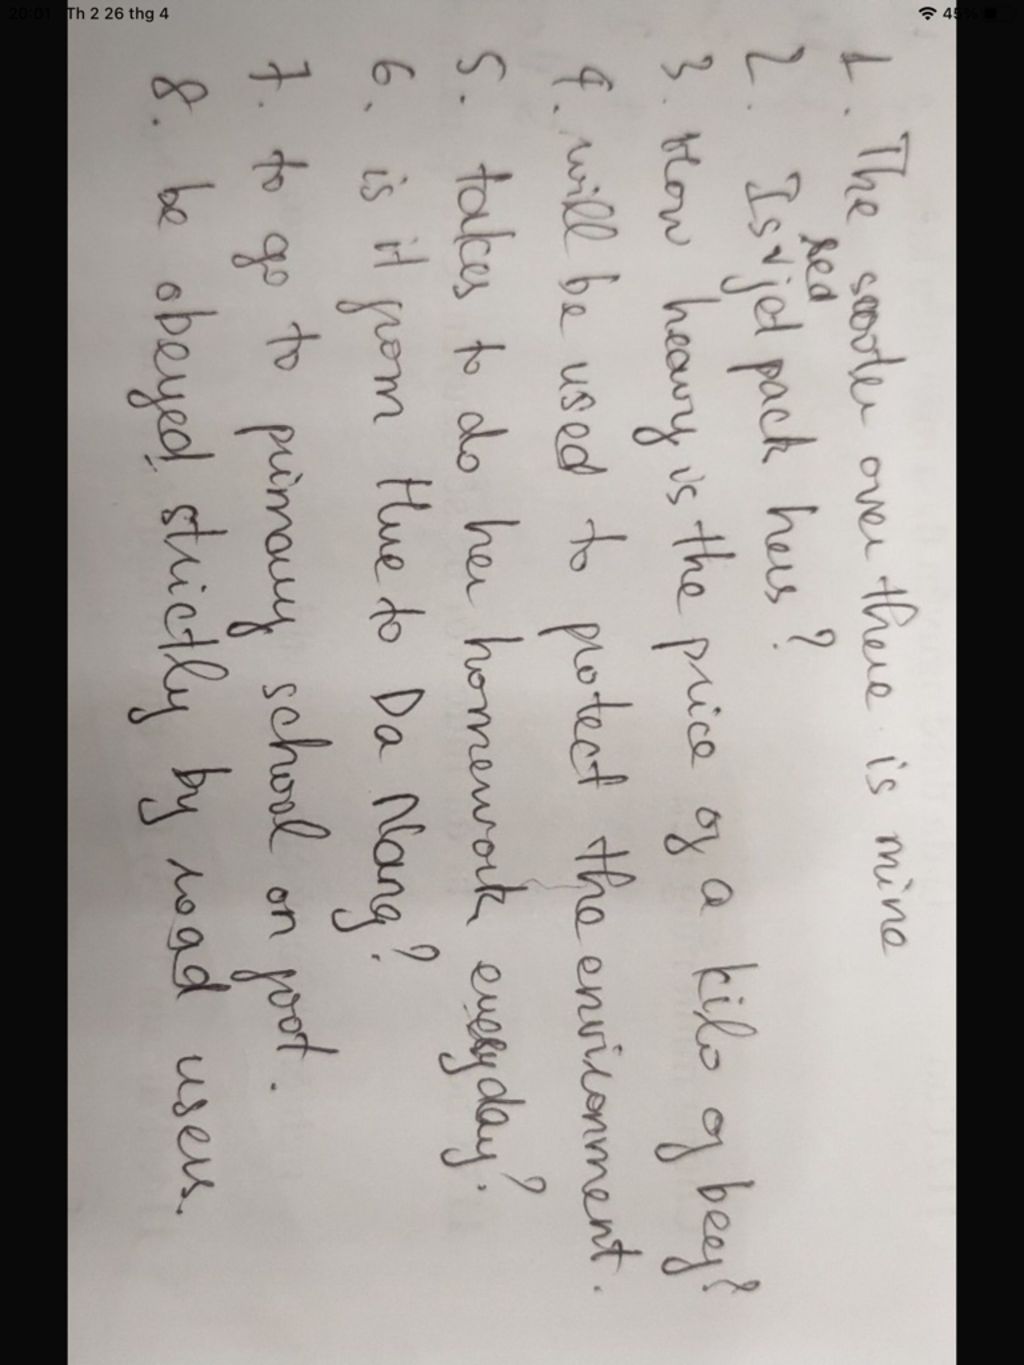 20:01 Th 2 26 thg 4
45%
1. The scooter over there is mine
red
2. Is jet pack hers?
3. How heavy is the price of a kilo of beef?
4. will be used to protect the environment.
5. takes to do her homework everyday?
6. is it from Hue to Da Nang?
7. to go to primary school on foot.
8. be obeyed strictly by road users.